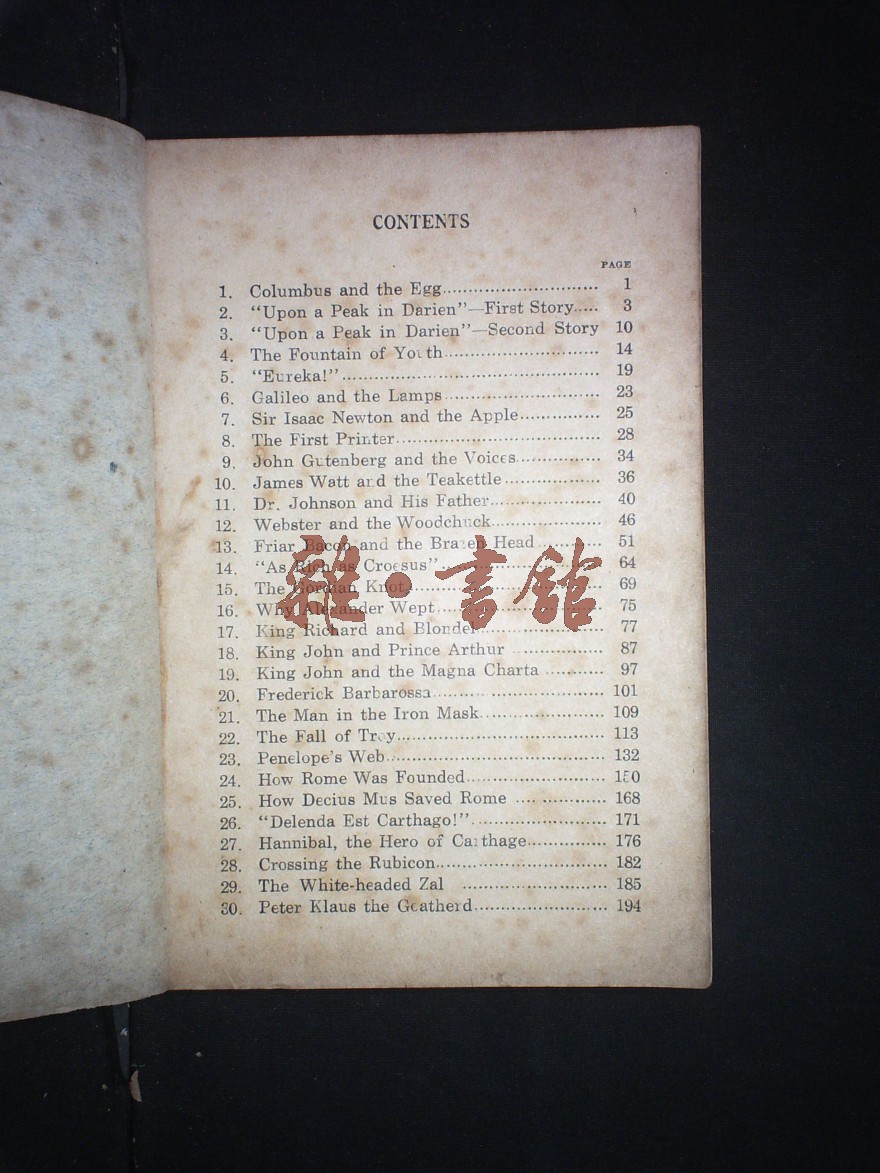 CONTENTS
PAGE
1. Columbus and the Egg.............................. 1
2. "Upon a Peak in Darien"—First Story..... 3
3. "Upon a Peak in Darien"—Second Story 10
4. The Fountain of Youth.............................. 14
5. "Eureka!".................................................. 19
6. Galileo and the Lamps.............................. 23
7. Sir Isaac Newton and the Apple................ 25
8. The First Printer........................................ 28
9. John Gutenberg and the Voices................. 34
10. James Watt and the Teakettle................... 36
11. Dr. Johnson and His Father...................... 40
12. Webster and the Woodchuck..................... 46
13. Friar Bacon and the Brazen Head............. 51
14. "As Rich as Croesus"................................ 64
15. The Gordian Knot...................................... 69
16. Why Alexander Wept................................ 75
17. King Richard and Blondel......................... 77
18. King John and Prince Arthur .................. 87
19. King John and the Magna Charta ........... 97
20. Frederick Barbarossa................................ 101
21. The Man in the Iron Mask........................ 109
22. The Fall of Troy........................................ 113
23. Penelope's Web.......................................... 132
24. How Rome Was Founded........................... 150
25. How Decius Mus Saved Rome .................. 168
26. "Delenda Est Carthago!".......................... 171
27. Hannibal, the Hero of Carthage............... 176
28. Crossing the Rubicon................................. 182
29. The White-headed Zal ............................ 185
30. Peter Klaus the Goatherd.......................... 194
雜·書館